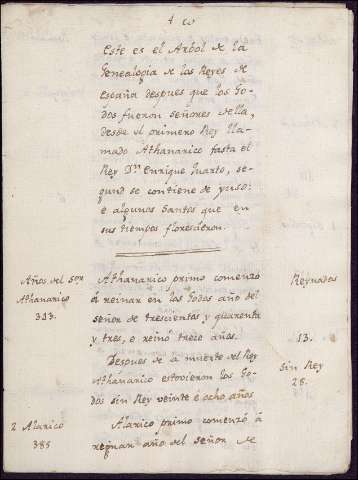 Este es el Arbol de la
Genealogia de los Reyes de
España despues que los Go-
dos fueron señores della,
desde el primero Rey lla-
mado Athanarico fasta el
Rey Dⁿ Enrique Quarto, se-
gund se contiene de yuso:
e algunos Santos que en
sus tiempos florescieron.
Años del
Athanarico
343.
Athanarico primo comenzó
á reinar en los Godos año del
señor de trescientas y quarenta
y tres, e reinó trece años.
Reynados
13.
Despues de la muerte del Rey
Athanarico estovieron los Go-
dos sin Rey veinte e ocho años
Sin Rey
28.
2 Alarico
385
Alarico primo comenzó á
reynar año del señor de